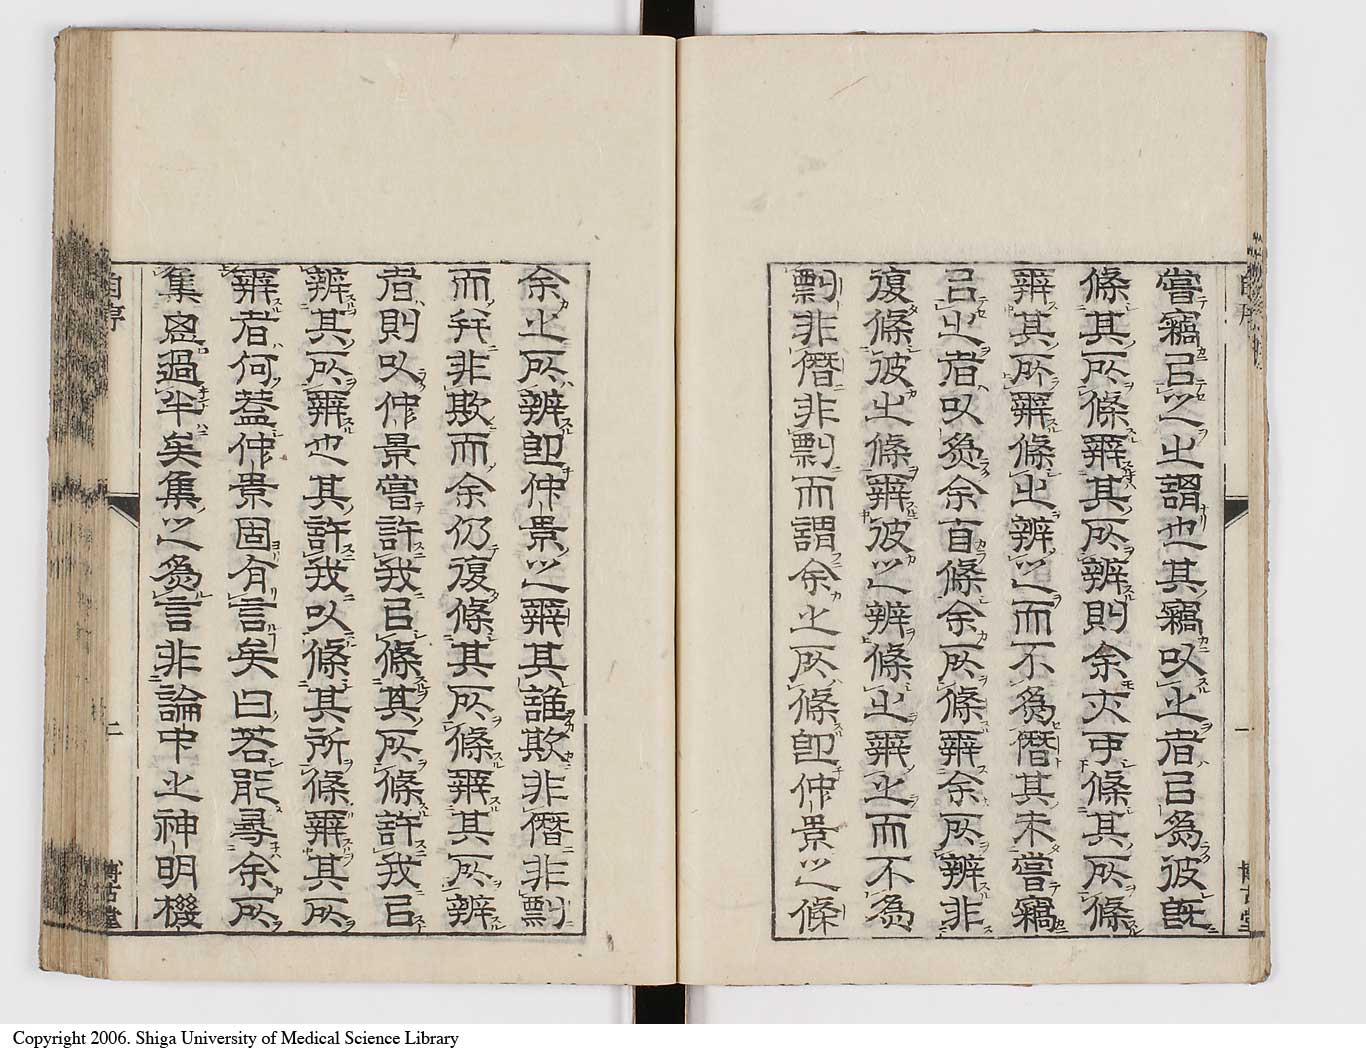 自序
一
博古堂
嘗竊㠯之之謂也其竊以之者㠯爲彼既
條其所條辨其所辨則余亦可條其所條
辨其所辨條之辨之而不爲僭其未嘗竊
㠯之者以爲余自條余所條辨余所辨非
復條彼之條辨彼之辨條之辨之而不爲
剽非僭非剽而謂余之所條卽仲景之條
余之所辨卽仲景之辨其誰欺非僭非剽
而我非欺而余仍復條其所條辨其所辨
者則以仲景嘗許我㠯條其所條許我㠯
辨其所辨也其許我以條其所條辨其所
辨者何蓋仲景固有言矣曰若能尋余所
集思過半矣集之爲言非論中之神明機
自序
二
博古堂
Copyright 2006. Shiga University of Medical Science Library